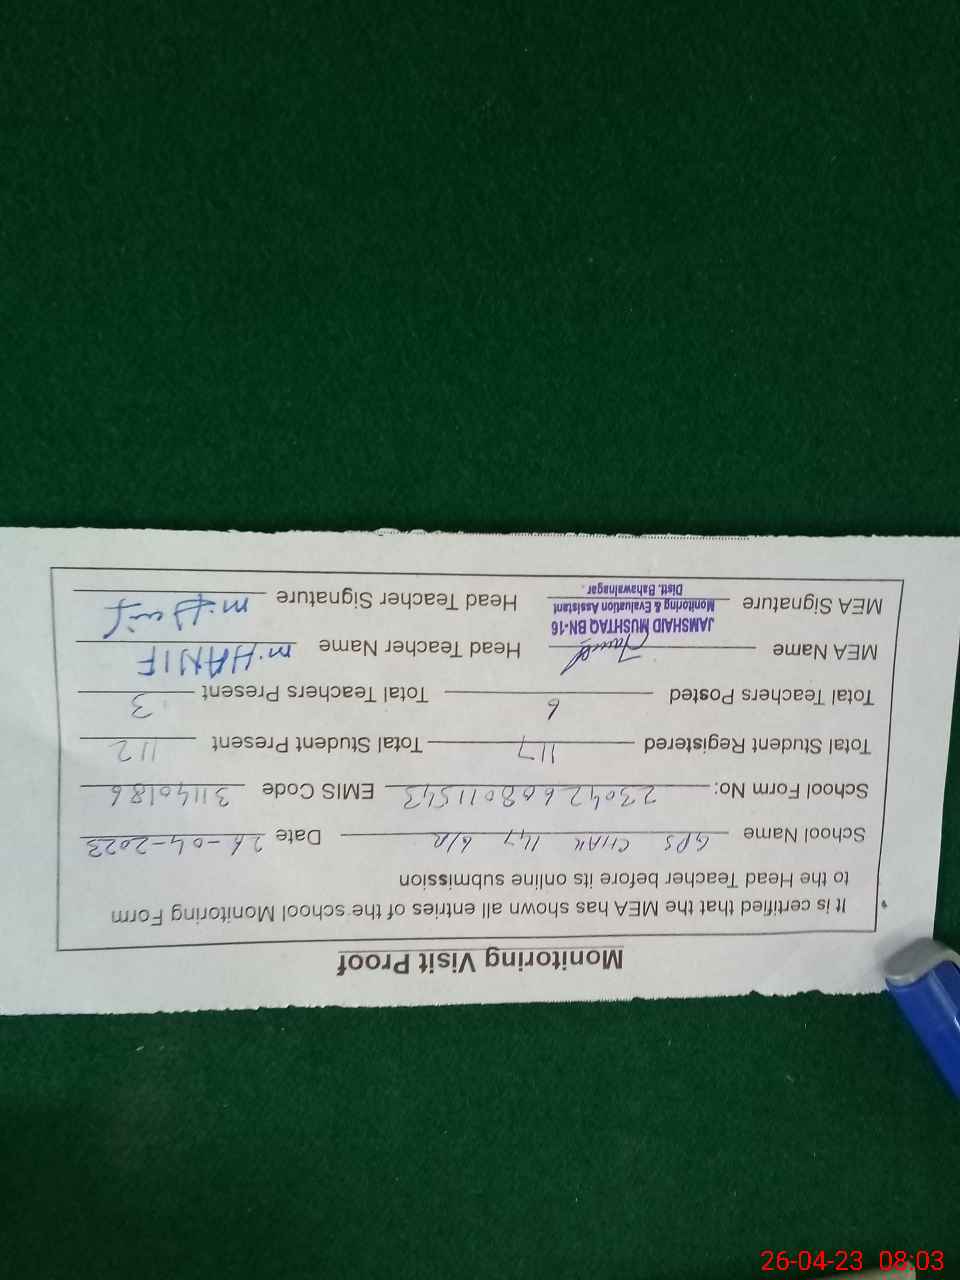 Monitoring Visit Proof
It is certified that the MEA has shown all entries of the school Monitoring Form
to the Head Teacher before its online submission
School Name GPS CHAK 147 6/R Date 26-04-2023
School Form No: 23042608011543 EMIS Code 31140186
Total Student Registered 117 Total Student Present 112
Total Teachers Posted 6 Total Teachers Present 3
MEA Name Head Teacher Name M.HANIF
JAMSHAID MUSHTAQ BN-16
Monitoring & Evaluation Assistant
Distt. Bahawalnagar.
MEA Signature Head Teacher Signature M.Hanif
26-04-23 08:03